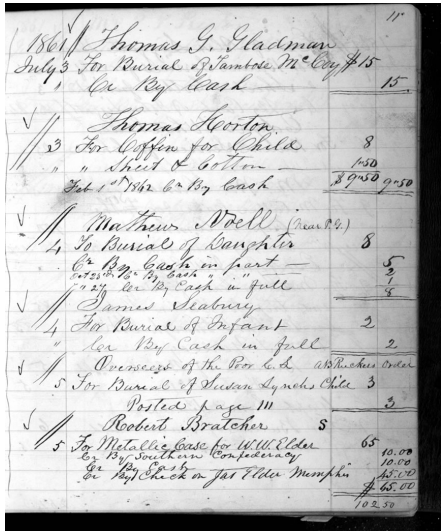 11
1861 // Thomas G. Gladman
July 3 For Burial of Tambose McCoy $15
" Cr By Cash 15
// Thomas Horton
3 For Coffin for Child 8
" " Sheet & Cotton 1.50
Feb 1st 1862 Cr By Cash $9.50 9.50
// Mathews Noell (near P.G.)
4 To Burial of Daughter 8
Cr By Cash in part 5
Oct 25 Cr By Cash " " 2
" 27 Cr By Cash in full 1
8
// James Seabury
4 For Burial of Infant 2
" Cr By Cash in full 2
// Overseers of the Poor C.L A B Ruckers Order
5 For Burial of Susan Lynchs Child 3
Posted page 111 3
// Robert Bratcher S
5 For Metallic Case for W.W. Elder 65
Cr By Southern Confederacy 10.00
Cr By Cash 10.00
Cr By Check on Jas Elder Memphis 45.00
$65.00
102 50